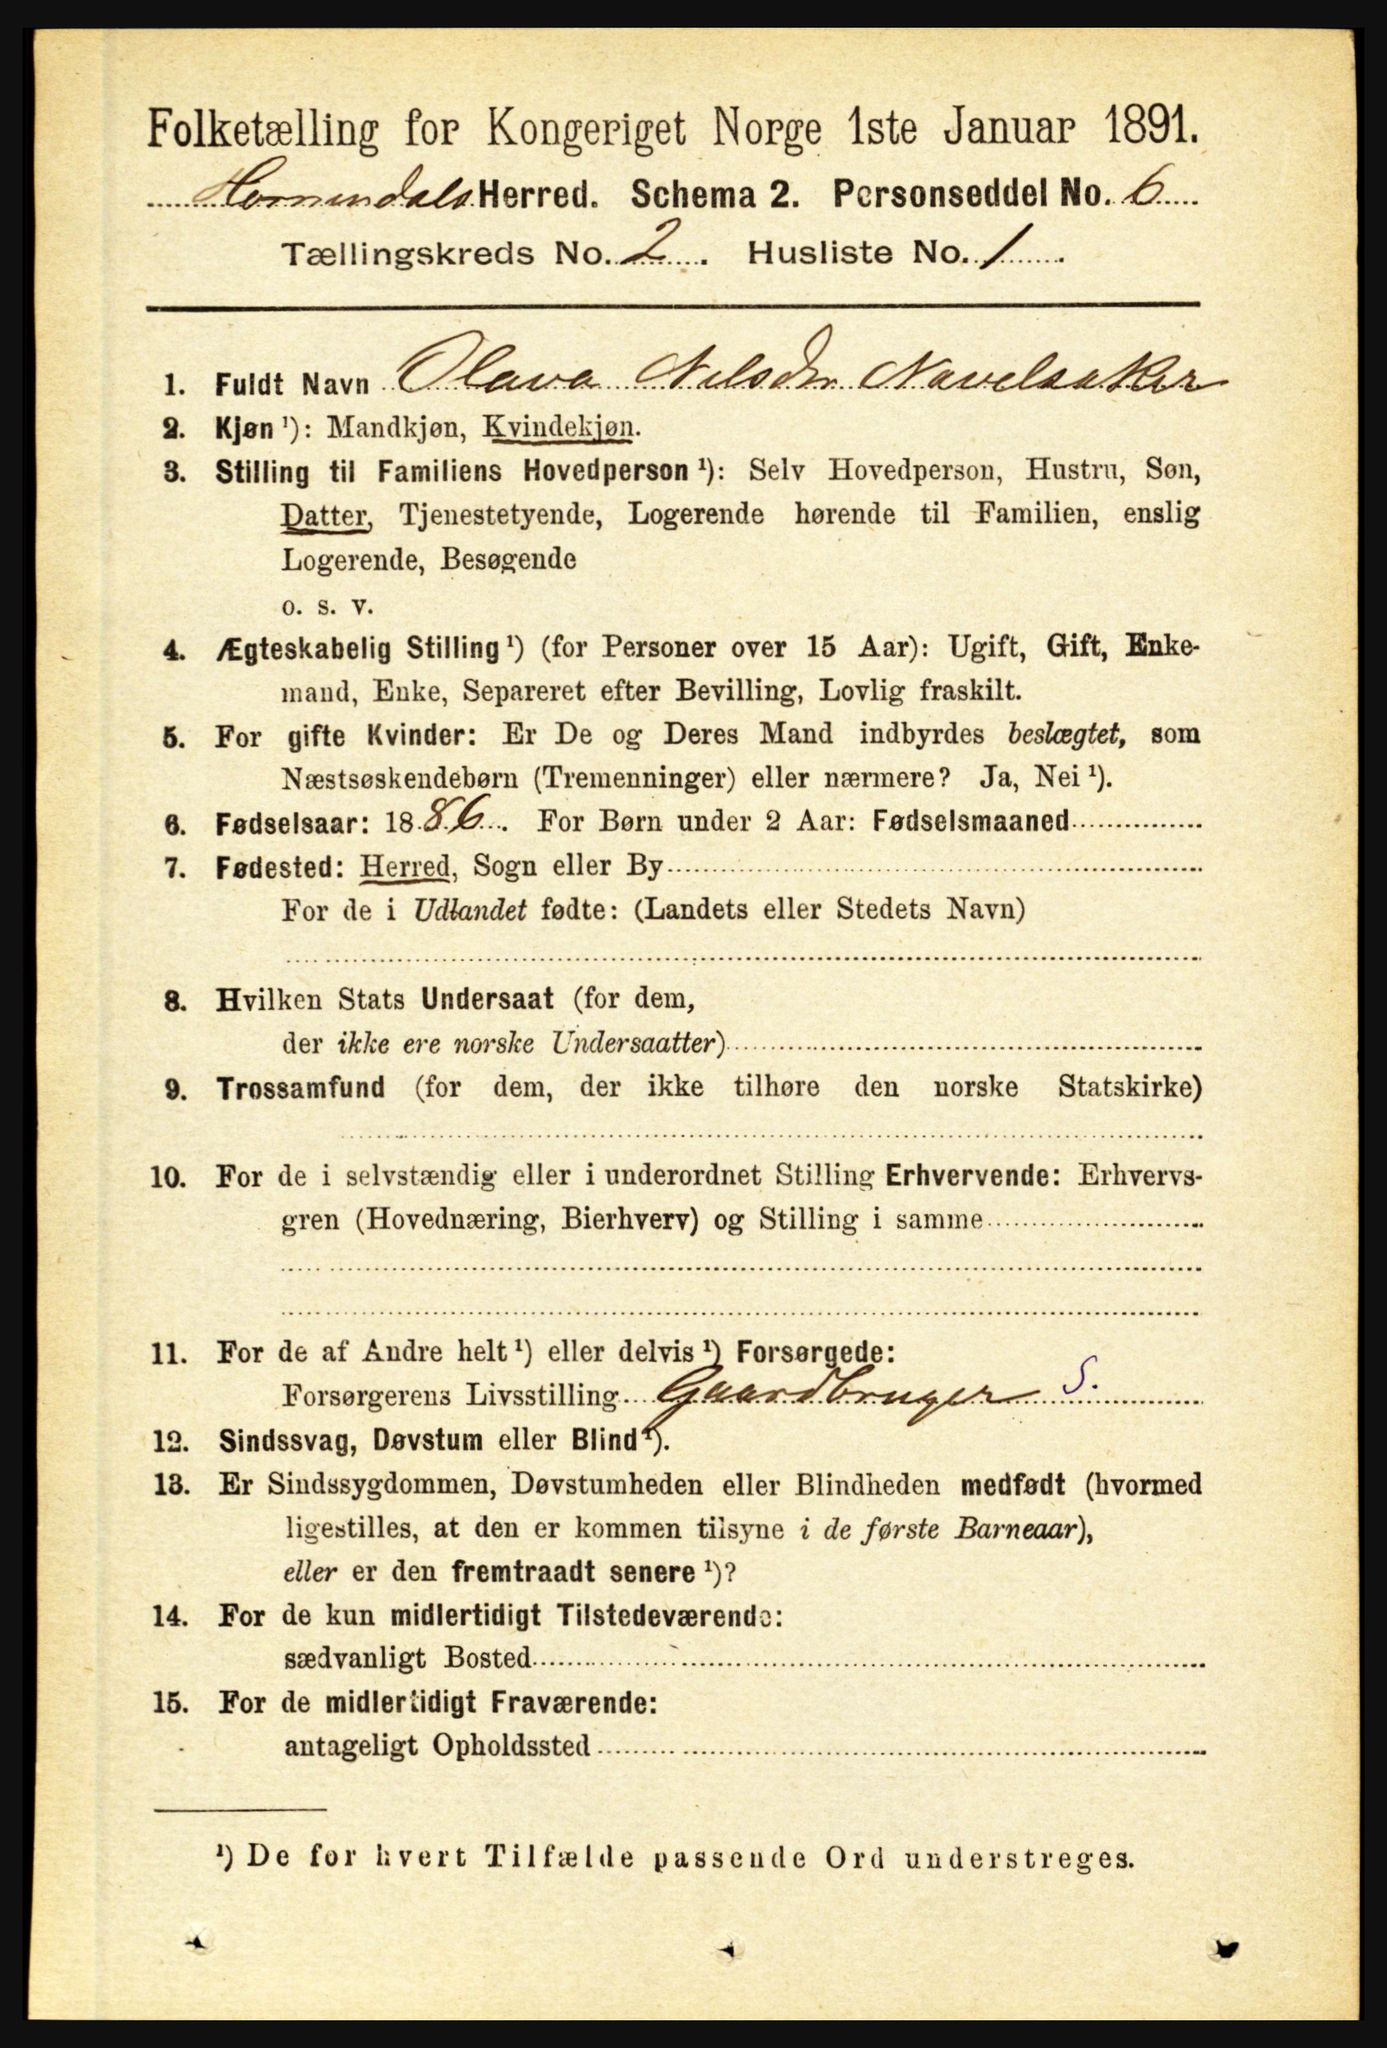 Folketælling for Kongeriget Norge 1ste Januar 1891.
Hornindals Herred. Schema 2. Personseddel No. 6
Tællingskreds No. 2. Husliste No. 1.
1. Fuldt Navn Olava Nilsdtr Navelsaker
2. Kjøn ¹): Mandkjøn, Kvindekjøn.
3. Stilling til Familiens Hovedperson ¹): Selv Hovedperson, Hustru, Søn,
Datter, Tjenestetyende, Logerende hørende til Familien, enslig
Logerende, Besøgende
o. s. v.
4. Ægteskabelig Stilling ¹) (for Personer over 15 Aar): Ugift, Gift, Enke-
mand, Enke, Separeret efter Bevilling, Lovlig fraskilt.
5. For gifte Kvinder: Er De og Deres Mand indbyrdes beslægtet, som
Næstsøskendebørn (Tremenninger) eller nærmere? Ja, Nei ¹).
6. Fødselsaar: 1886. For Børn under 2 Aar: Fødselsmaaned
7. Fødested: Herred, Sogn eller By
For de i Udlandet fødte: (Landets eller Stedets Navn)
8. Hvilken Stats Undersaat (for dem,
der ikke ere norske Undersaatter)
9. Trossamfund (for dem, der ikke tilhøre den norske Statskirke)
10. For de i selvstændig eller i underordnet Stilling Erhvervende: Erhvervs-
gren (Hovednæring, Bierhverv) og Stilling i samme
11. For de af Andre helt ¹) eller delvis ¹) Forsørgede:
Forsørgerens Livsstilling Gaardbruger S.
12. Sindssvag, Døvstum eller Blind ¹).
13. Er Sindssygdommen, Døvstumheden eller Blindheden medfødt (hvormed
ligestilles, at den er kommen tilsyne i de første Barneaar),
eller er den fremtraadt senere ¹)?
14. For de kun midlertidigt Tilstedeværende:
sædvanligt Bosted
15. For de midlertidigt Fraværende:
antageligt Opholdssted
¹) De for hvert Tilfælde passende Ord understreges.